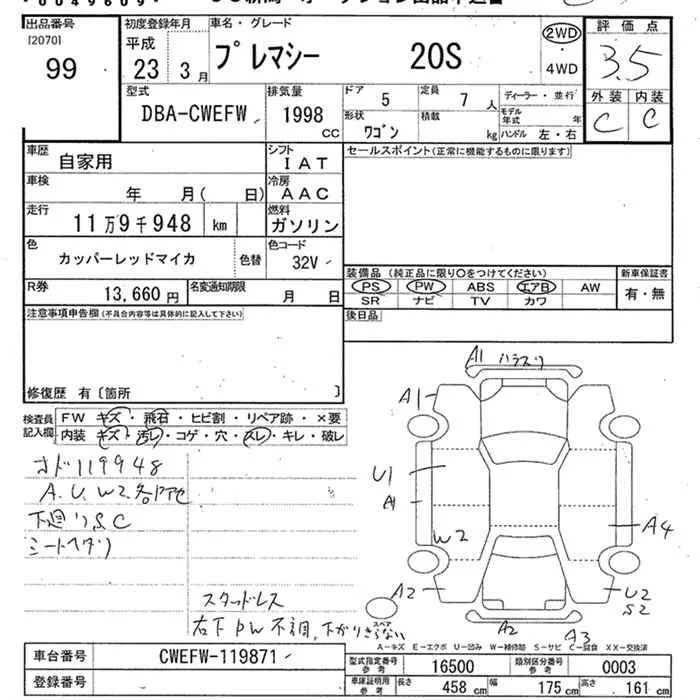 出品番号 初度登録年月 車名・グレード 評価点
[2070] 平成 2WD
99 23 3月 プレマシー 20S ・ 3.5
4WD
型式 排気量 ドア 5 定員 7人 ディーラー・並行 外装 内装
DBA-CWEFW 1998 cc 形状 ワゴン 積載 kg モデル年式 年 C C
ハンドル 左・右
車歴 自家用 シフト IAT セールスポイント(正常に機能するものに限ります)
車検 年 月( 日) 冷房 AAC
走行 11万9千948 km 燃料 ガソリン
色 カッパーレッドマイカ 色替 色コード 32V
装備品 (純正品に限り○をつけてください) 新車保証書
R券 13,660円 名変通知期限 月 日 PS PW ABS エアB AW 有・無
SR ナビ TV カワ
注意事項申告欄(不具合内容等は具体的に記入して下さい) 後日品
修復歴 有〔箇所 〕
検査員記入欄 FW キズ・飛石・ヒビ割・リペア跡・×要
内装 キズ・汚レ・コゲ・穴・スレ・キレ・破レ
オド119948
A.U.W2.各所他
下廻りS.C
シートヘタリ
スタッドレス
右下PW不調,下がりきらない
A1
A1
U1
A1
W2
A4
A2
U2
S2
A2
A3
スペア
A-キズ E-エクボ U-凹み W-補修跡 S-サビ C-腐食 XX-交換済
車台番号 CWEFW-119871
登録番号
型式指定番号 参考 16500 類別区分番号 参考 0003
車庫証明用 参考 長さ 458 cm 幅 175 cm 高さ 161 cm